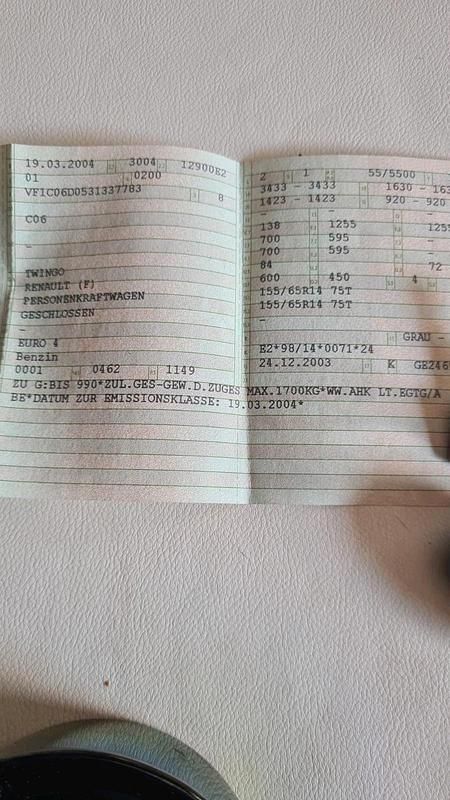 19.03.2004 3004 12900E2
01 0200
VF1C06D0531337783 8
C06
–
TWINGO
RENAULT (F)
PERSONENKRAFTWAGEN
GESCHLOSSEN
–
EURO 4
Benzin
0001 0462 1149
2 1 55/5500
3433 – 3433 1630 – 163
1423 – 1423 920 – 920
– – –
138 1255 1255
700 595
700 595
84 72
600 450 4
155/65R14 75T
155/65R14 75T
–
GRAU –
E2*98/14*0071*24
24.12.2003 K GE246
ZU G:BIS 990*ZUL.GES-GEW.D.ZUGES MAX.1700KG*WW.AHK LT.EGTG/A
BE*DATUM ZUR EMISSIONSKLASSE: 19.03.2004*